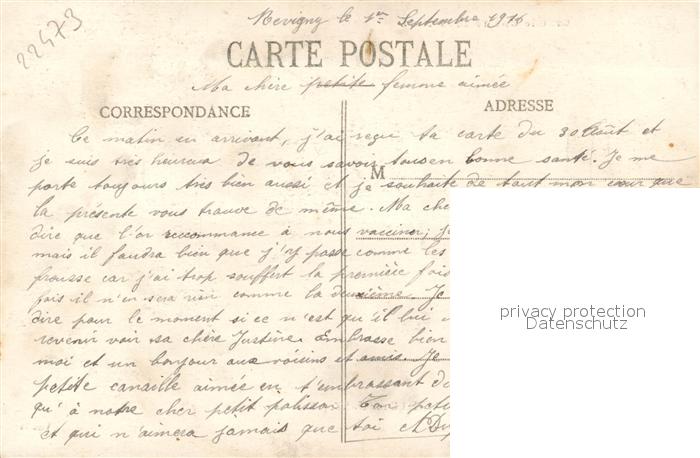 22473
Revigny le 1er Septembre 1916
CARTE POSTALE
Ma chère petite femme aimée
CORRESPONDANCE
ADRESSE
Ce matin en arrivant, j'ai reçu ta carte du 30 Août et
je suis très heureux de vous savoir tous en bonne santé. Je me
M
porte toujours très bien aussi et je souhaite de tout mon cœur que
la présente vous trouve de même. Ma
dire que l'on recommance à nous vacciner,
mais il faudra bien que j'y passe comme les
frousse car j'ai trop souffert la première fois
fois il n'en sera rien comme la deuxième. Je
dire pour le moment si ce n'est qu'il
revenir voir sa chère Justine. Embrasse bien
moi et un bonjour aux voisins et amis. Je
petite canaille aimée en t'embrassant
qu'à notre cher petit polisson Ton
et qui n'aimera jamais que toi
privacy protection
Datenschutz